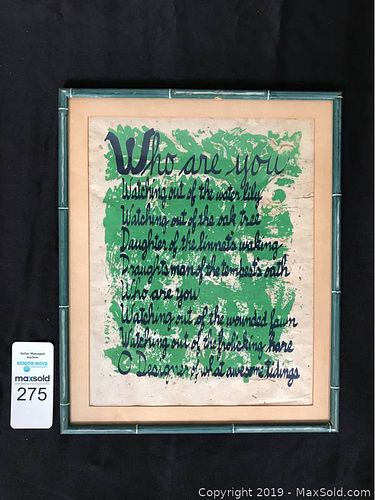 Who are you
Watching out of the water lily
Watching out of the oak tree
Daughter of the linnet's waking
Draughtsman of the tempest's oath
Who are you
Watching out of the wounded fawn
Watching out of the frolicking hare
O Designer of what awesome tidings
Seller-Managed
Auction
SENIOR MOVE
maxsold
275
Copyright 2019 - MaxSold.com